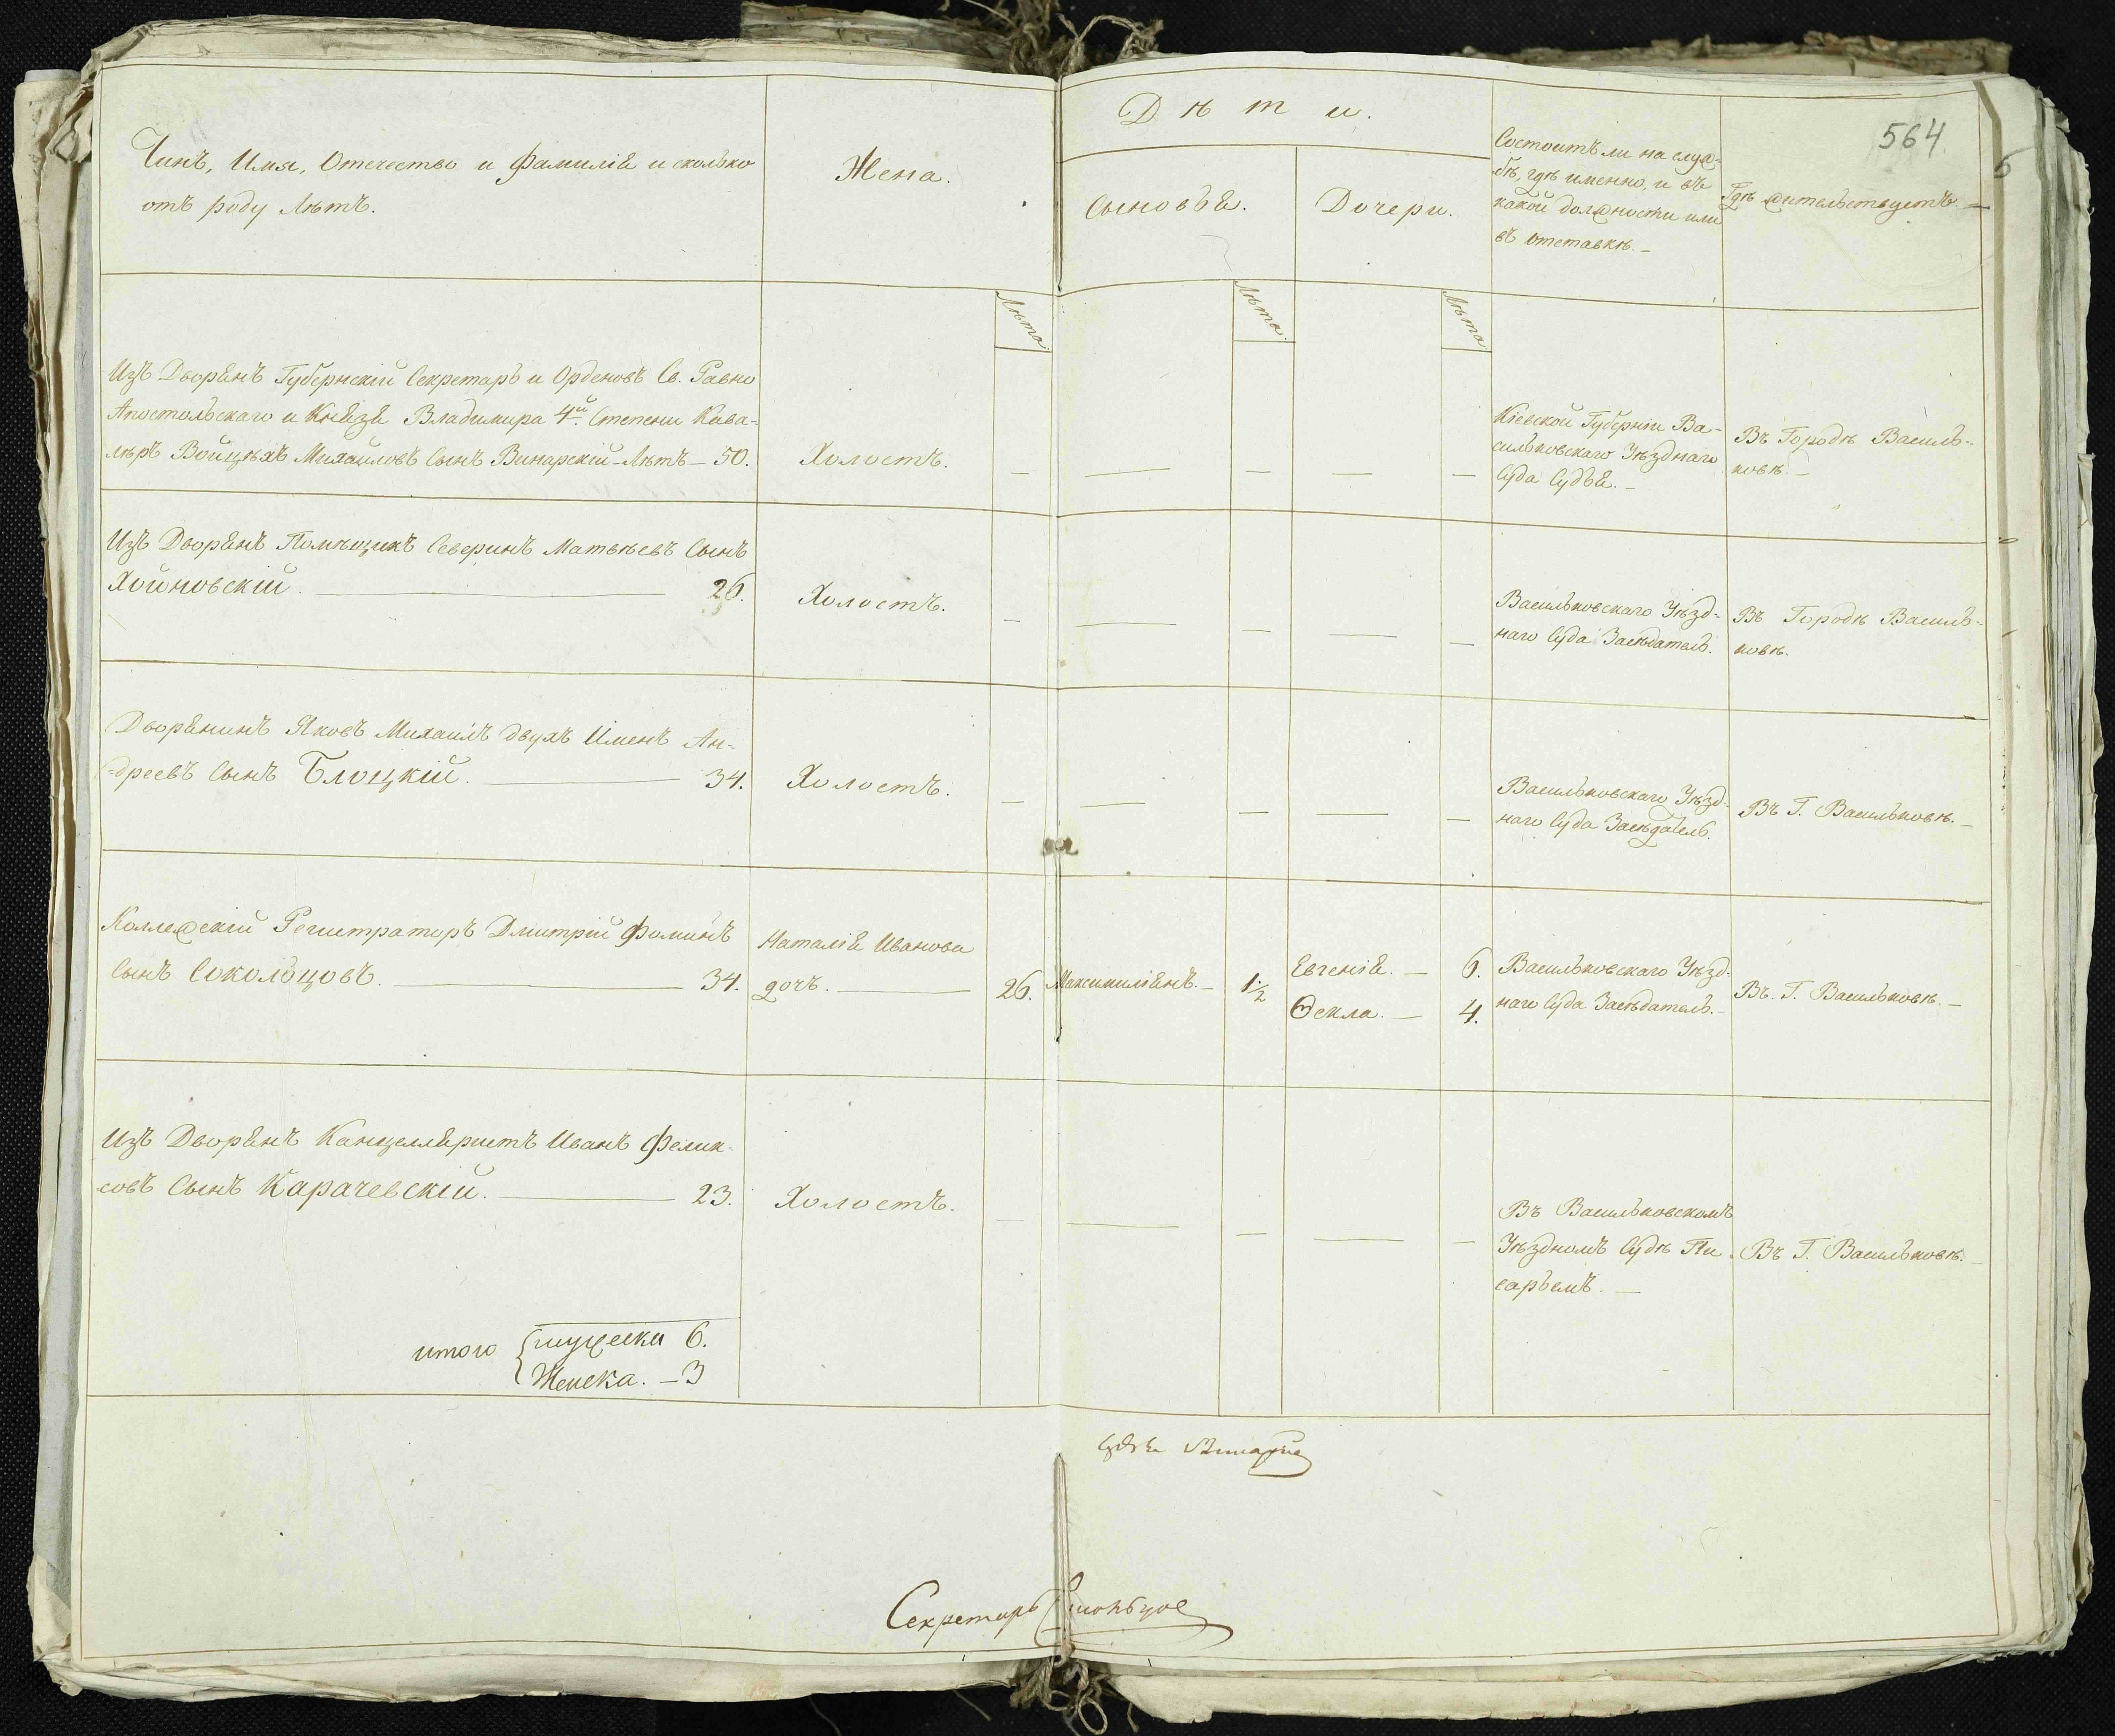 564
Чинъ, Имя, Отечество и Фамилія и сколько
отъ роду Лѣтъ.
Жена.
Дѣти.
Сыновья.
Дочери.
Состоитъ ли на служ-
бѣ, гдѣ именно, и въ
какой должности или
въ отставкѣ.—
Гдѣ жительствуетъ.—
Лѣта
Лѣта
Лѣта
Изъ Дворянъ Губернскій Секретарь и Орденовъ Св. Равно
Апостольскаго и Князя Владимира 4й Степени Кава-
леръ Войцѣхъ Михайловъ Сынъ Винарскій—Лѣтъ—50.
Холостъ.
Кіевской Губерніи Ва-
сильковскаго Уѣзднаго
Суда Судья.—
Въ Городѣ Василь-
ковѣ.—
Изъ Дворянъ Помѣщикъ Северинъ Матвѣевъ Сынъ
Хойновскій. — 26.
Холостъ.
Васильковскаго Уѣзд-
наго Суда Засѣдатель.
Въ Городѣ Василь-
ковѣ.
Дворянинъ Яковъ Михаилъ двухъ Именъ Ан-
дреевъ Сынъ Блоцкій. — 34.
Холостъ.
Васильковскаго Уѣзд-
наго Суда Засѣдатель.
Въ Г. Васильковѣ.—
Коллежскій Регистраторъ Дмитрій Фоминъ
Сынъ Соколѣцовъ. — 34.
Наталія Иванова
дочь. — 26.
Максимиліянъ.— 1½
Евгенія.— 6.
Ѳекла.— 4.
Васильковскаго Уѣзд-
наго Суда Засѣдатель.—
Въ Г. Васильковѣ.—
Изъ Дворянъ Канцелляристъ Иванъ Фелик-
совъ Сынъ Карачевскій. — 23.
Холостъ.
Въ Васильковскомъ
Уѣздномъ Судѣ Пи-
сарьемъ.—
Въ Г. Васильковѣ.—
итого мужеска 6.
Женска.—3
Судья
Секретарь